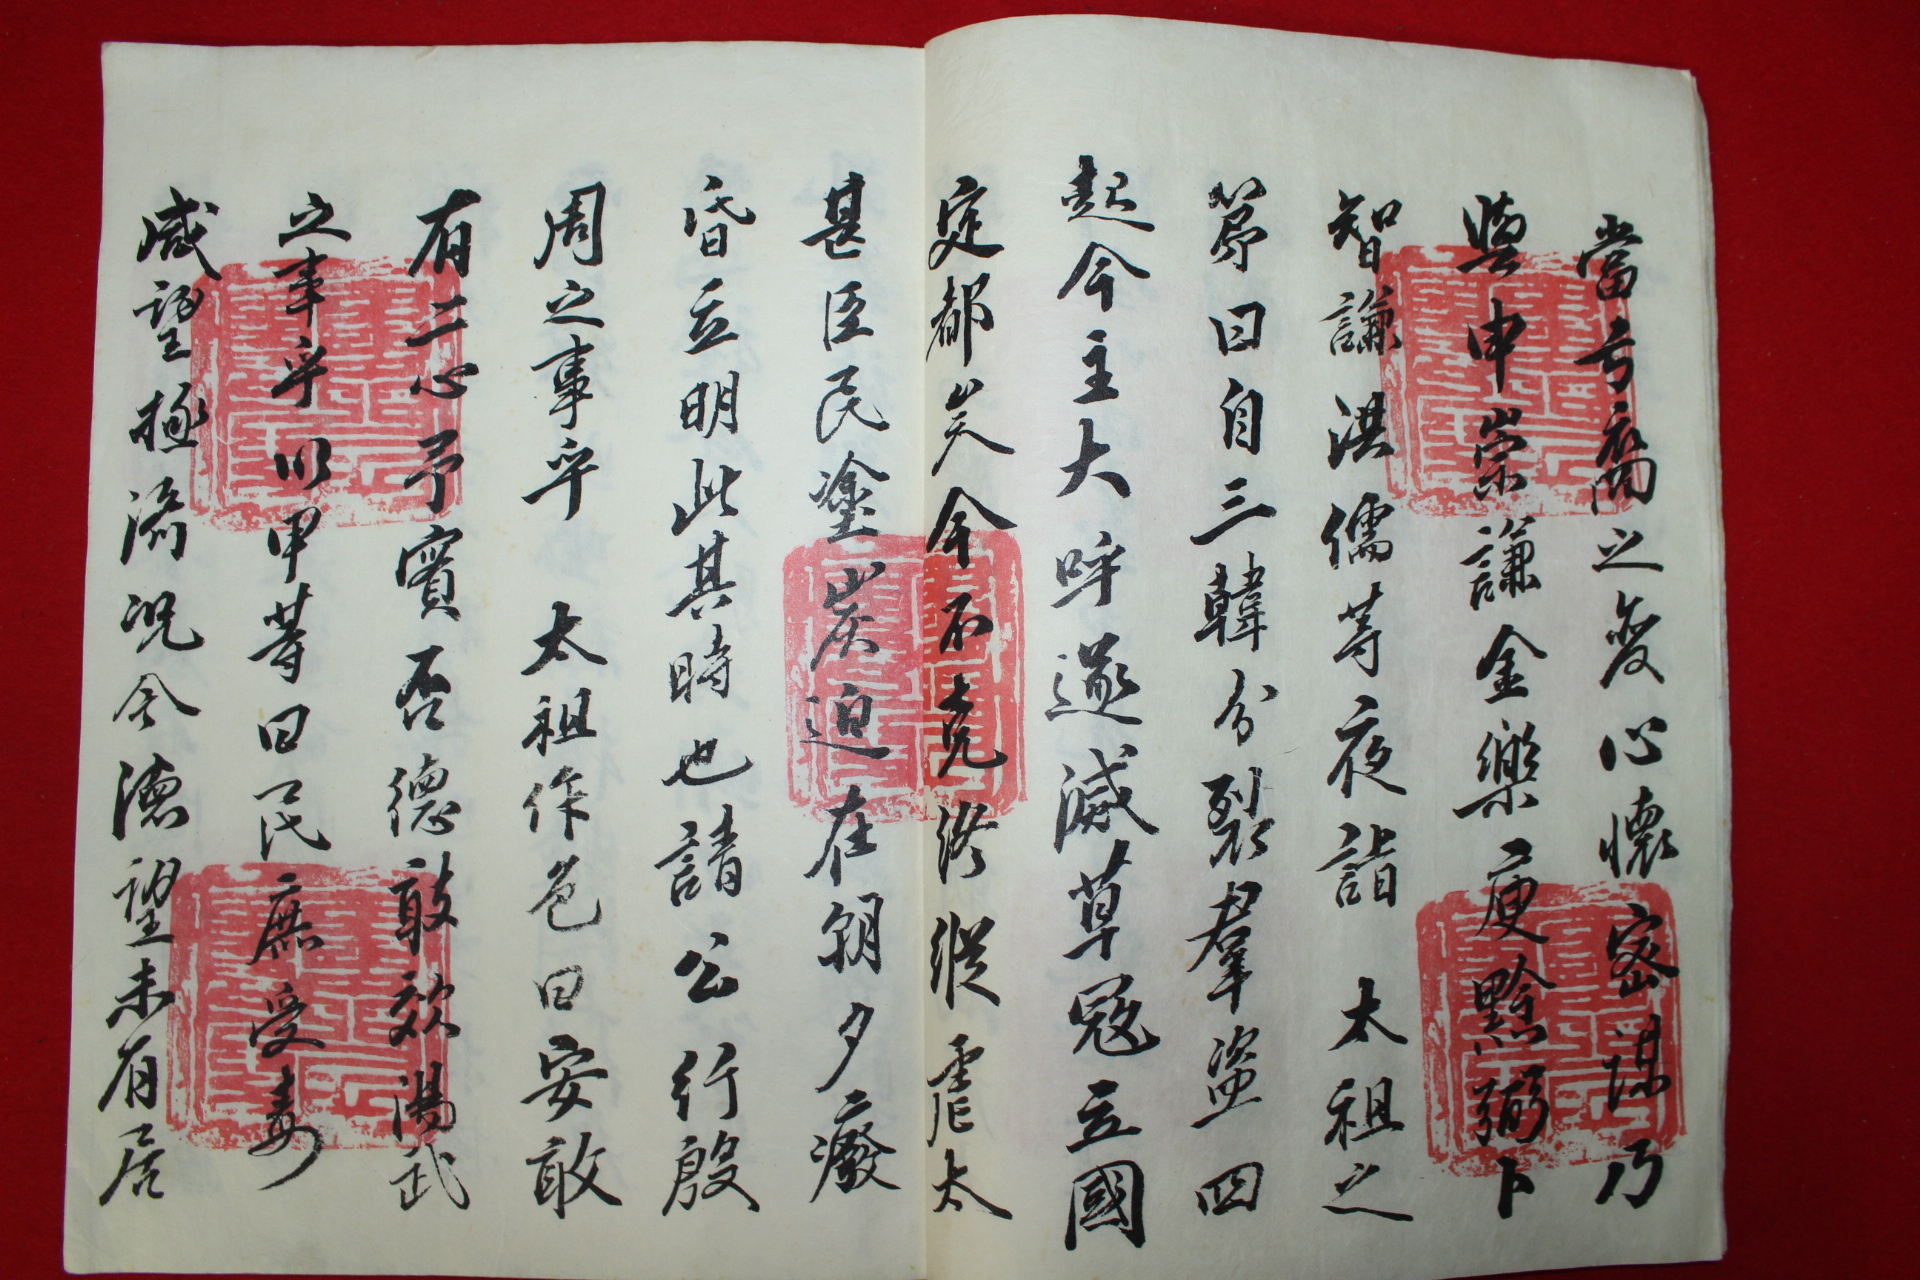 當弓裔之變心懷密謀乃
與申崇謙金樂庾黔弼卜
智謙洪儒等夜詣 太祖之
第曰自三韓分裂羣盜四
起今主大呼遂滅草寇立國
定都矣今不克終縱虐太
甚臣民塗炭迫在朝夕癈
昏立明此其時也請公行殷
周之事乎 太祖作色曰安敢
有二心予實否德敢效湯武
之事乎以甲等曰民庶受毒
咸望拯流況今德望未有居